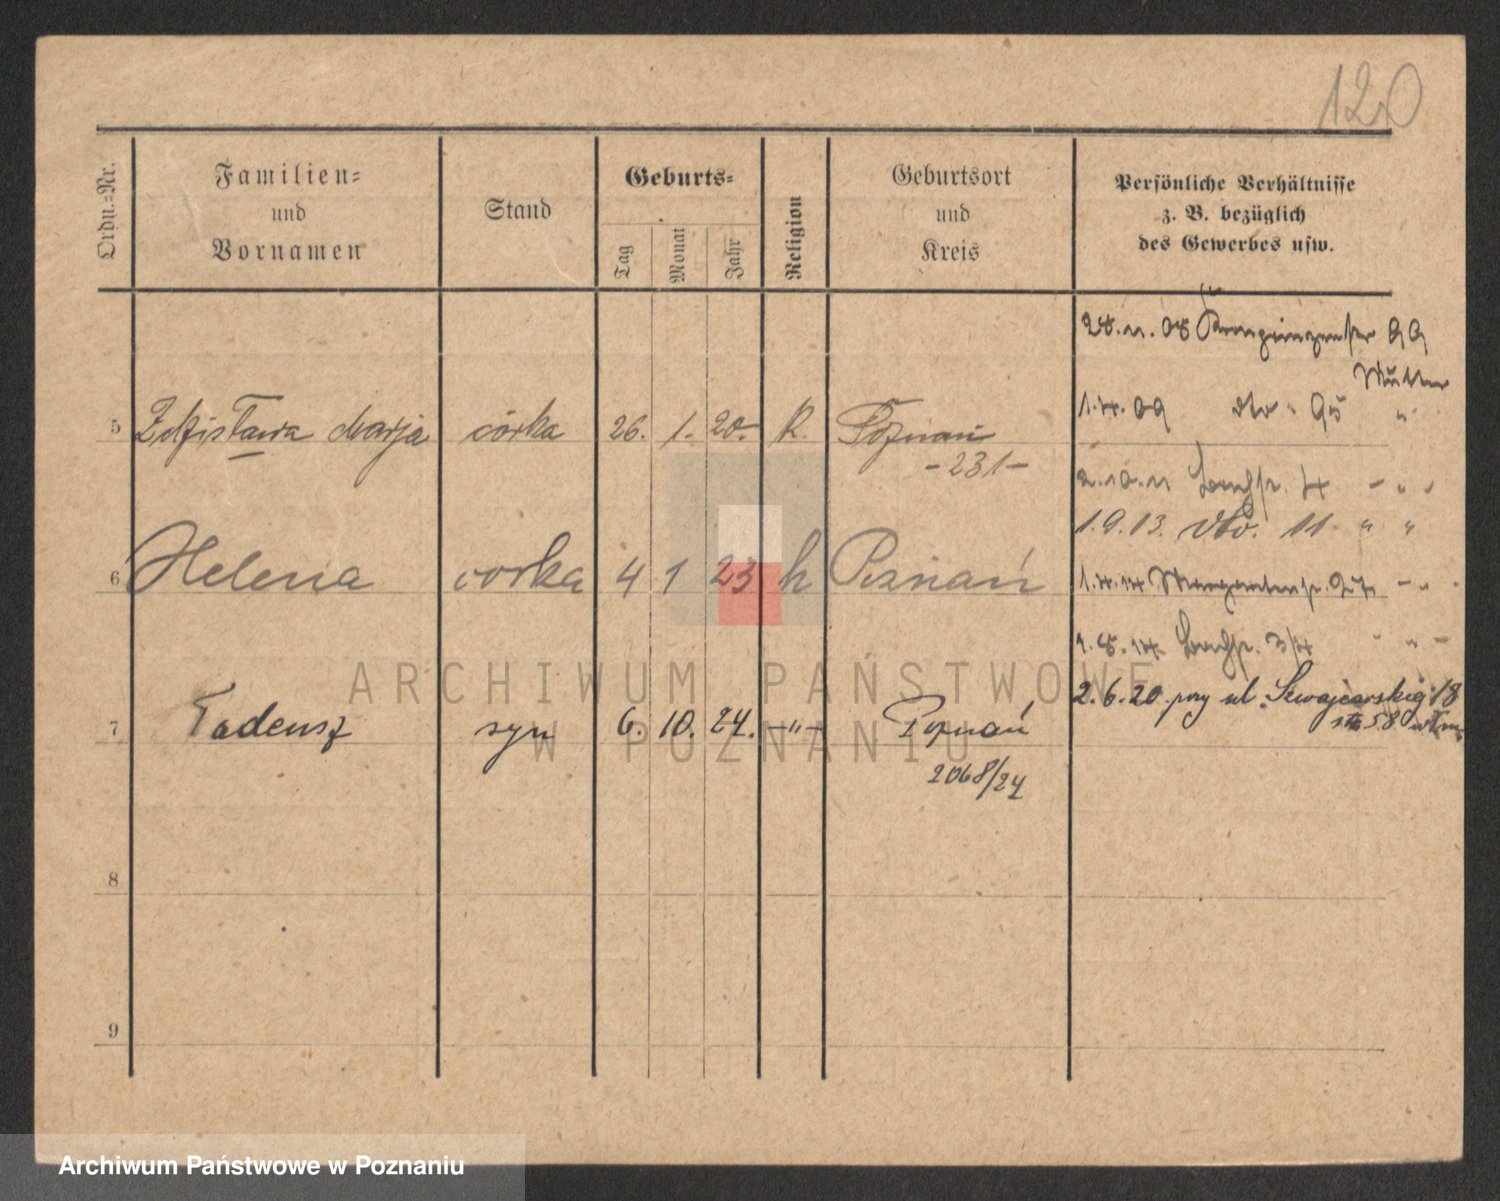 120
Ordn.-Nr.
Familien-
und
Vornamen
Stand
Geburts-
Tag
Monat
Jahr
Religion
Geburtsort
und
Kreis
Persönliche Verhältnisse
z. B. bezüglich
des Gewerbes usw.
28.11.08 Kronprinzenstr 99
Mutter
1.4.09 dto. 95 "
5 Zdzisława Marja córka 26. 1. 20. K. Poznań
-231-
2.10.11 4 - " -
1.9.13. dto. 11 " "
6 Helena corka 4 1 23 k Poznań
1.4.14 - " -
1.8.14 3/4 - " -
2.6.20 przy ul. Szwajcarskiej 18
7 Tadeusz syn 6. 10. 24. -"- Poznań
2068/24
8
9
ARCHIWUM PAŃSTWOWE
W POZNANIU
Archiwum Państwowe w Poznaniu